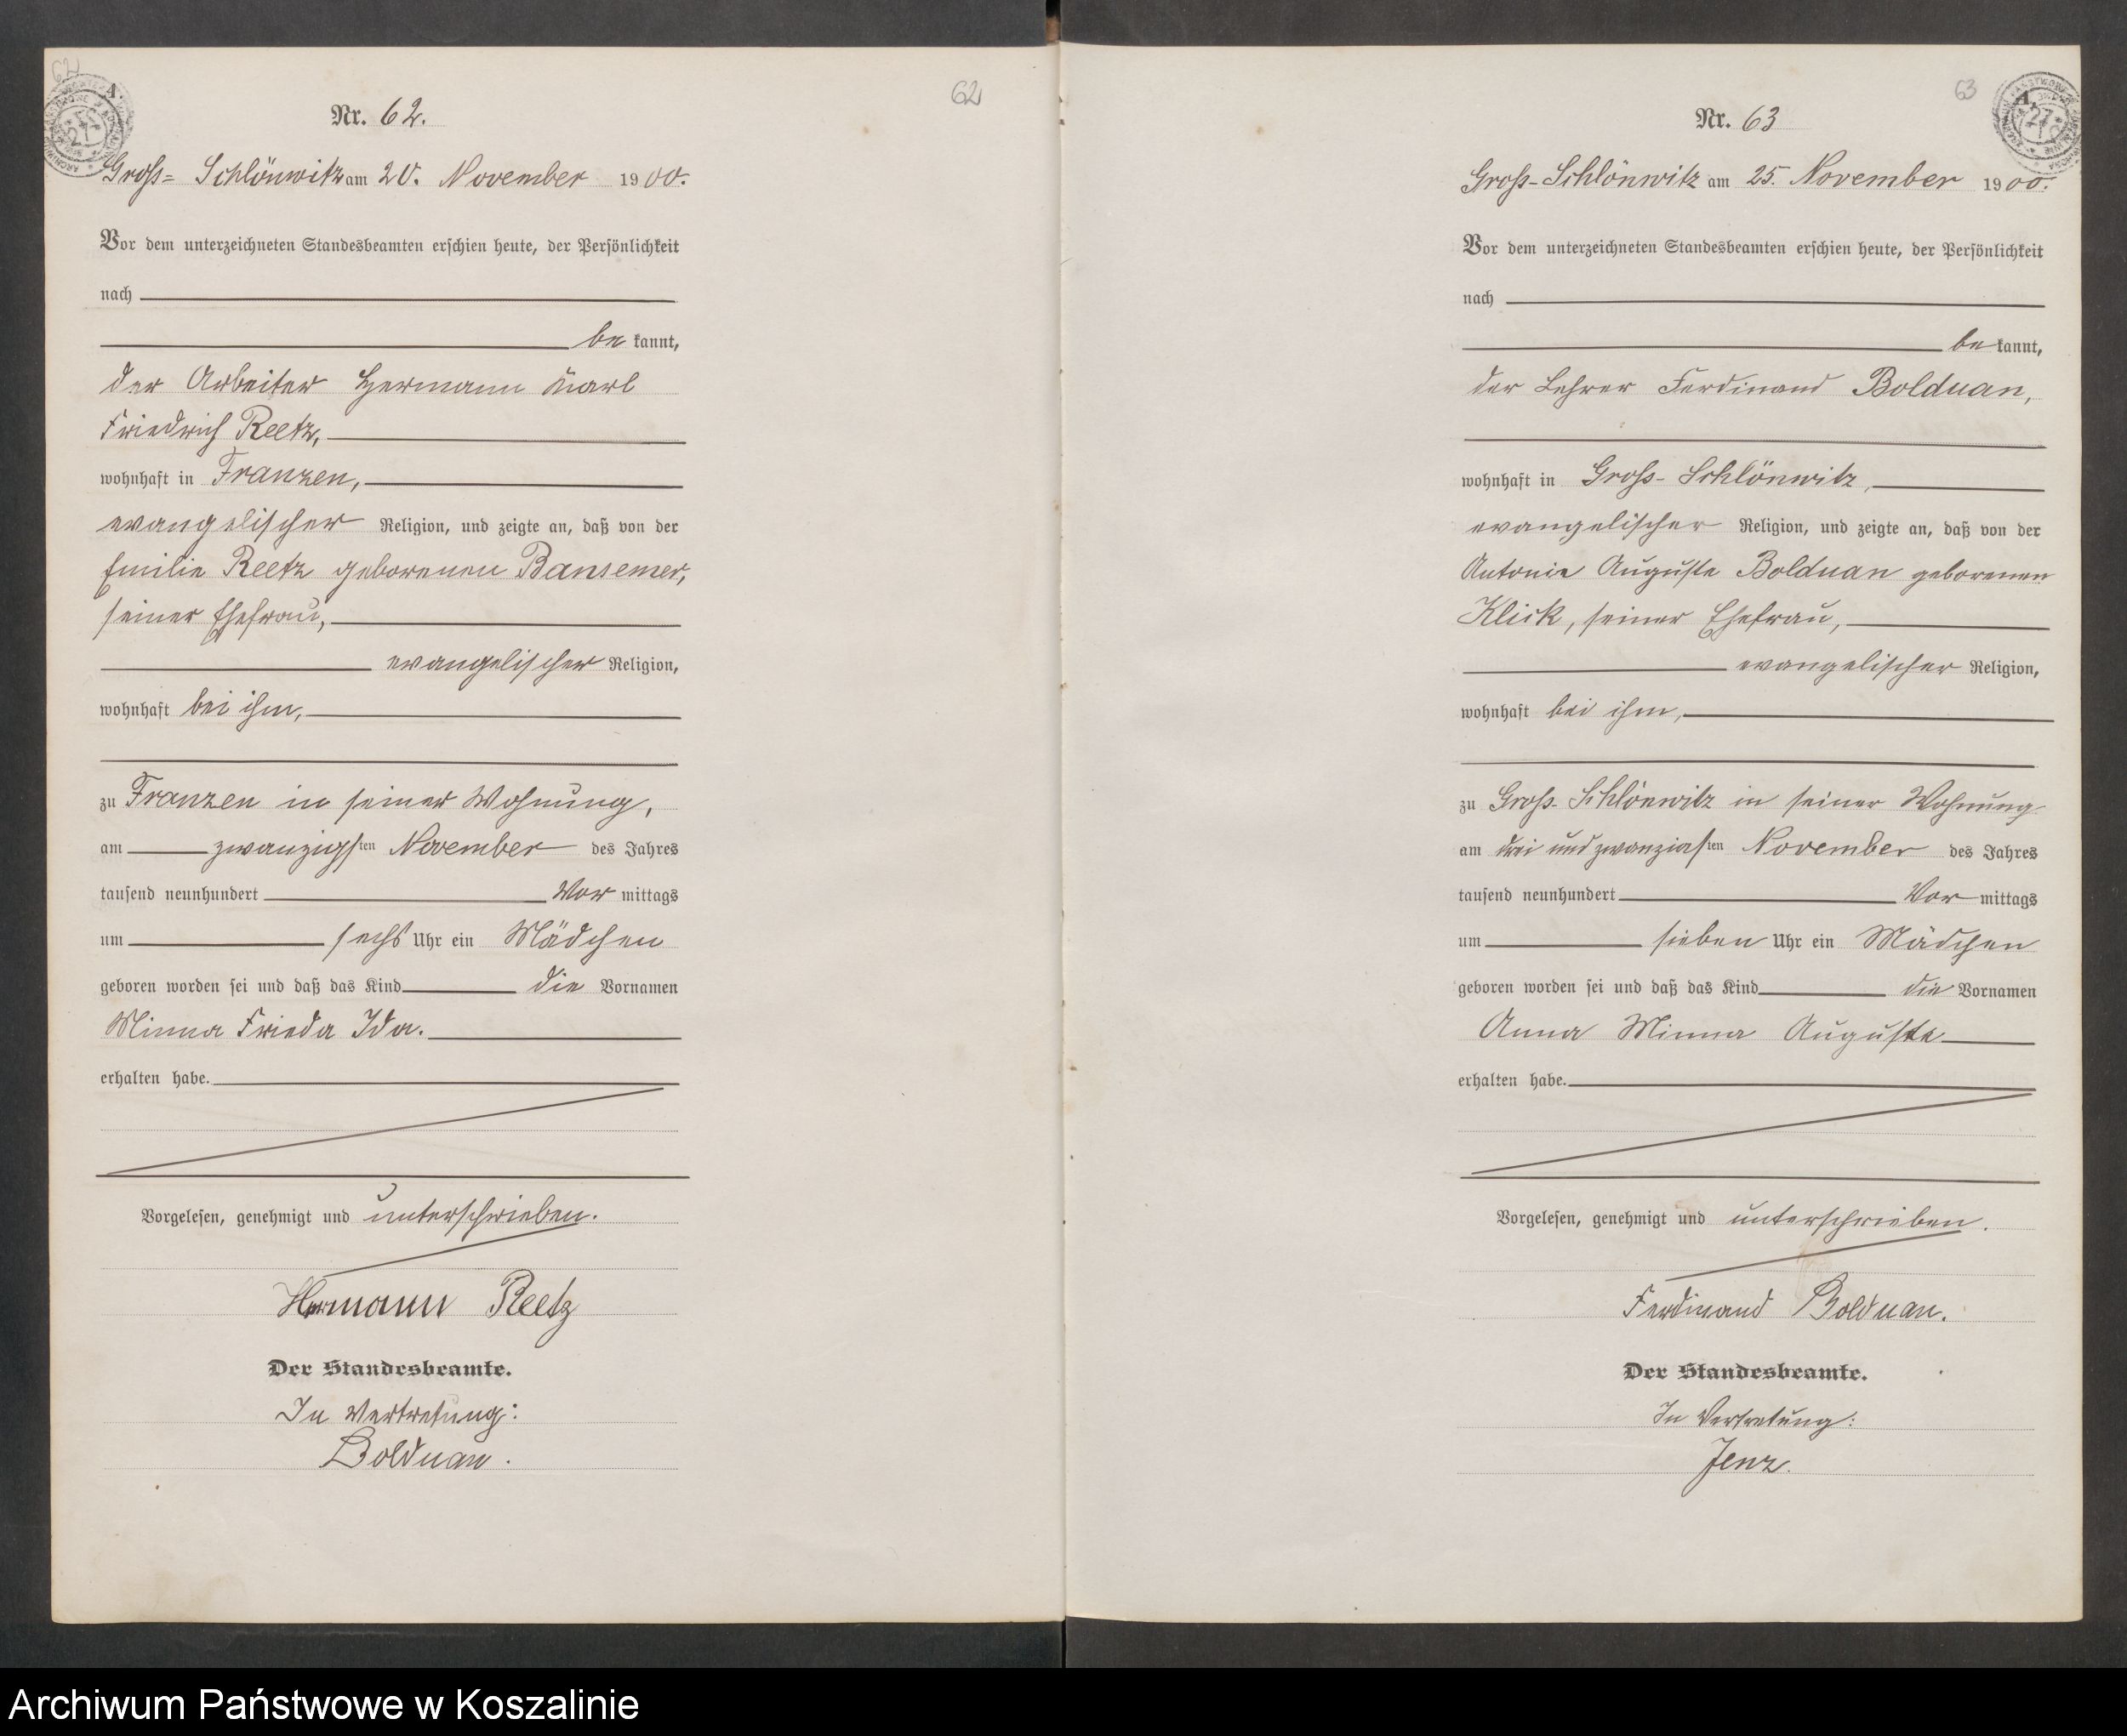 62
A.
Nr. 62.
Groß= Schlönwitz am 20. November 1900.
Vor dem unterzeichneten Standesbeamten erschien heute, der Persönlichkeit
nach
be kannt,
der Arbeiter Hermann Karl
Friedrich Reetz,
wohnhaft in Franzen,
evangelischer Religion, und zeigte an, daß von der
Emilie Reetz geborenen Bansemer,
seiner Ehefrau,
evangelischer Religion,
wohnhaft bei ihm,
zu Franzen in seiner Wohnung,
am zwanzigsten November des Jahres
tausend neunhundert Vor mittags
um sechs Uhr ein Mädchen
geboren worden sei und daß das Kind die Vornamen
Minna Frieda Ida.
erhalten habe.
Vorgelesen, genehmigt und unterschrieben.
Hermann Reetz
Der Standesbeamte.
In Vertretung:
Bolduan.
62
63
A.
Nr. 63
Groß-Schlönwitz am 25. November 1900.
Vor dem unterzeichneten Standesbeamten erschien heute, der Persönlichkeit
nach
be kannt,
der Lehrer Ferdinand Bolduan,
wohnhaft in Groß-Schlönwitz,
evangelischer Religion, und zeigte an, daß von der
Antonie Auguste Bolduan geborenen
Klick, seiner Ehefrau,
evangelischer Religion,
wohnhaft bei ihm,
zu Groß-Schlönwitz in seiner Wohnung
am drei und zwanzigsten November des Jahres
tausend neunhundert Vor mittags
um sieben Uhr ein Mädchen
geboren worden sei und daß das Kind die Vornamen
Anna Minna Auguste
erhalten habe.
Vorgelesen, genehmigt und unterschrieben.
Ferdinand Bolduan.
Der Standesbeamte.
In Vertretung:
Jenz.
Archiwum Państwowe w Koszalinie